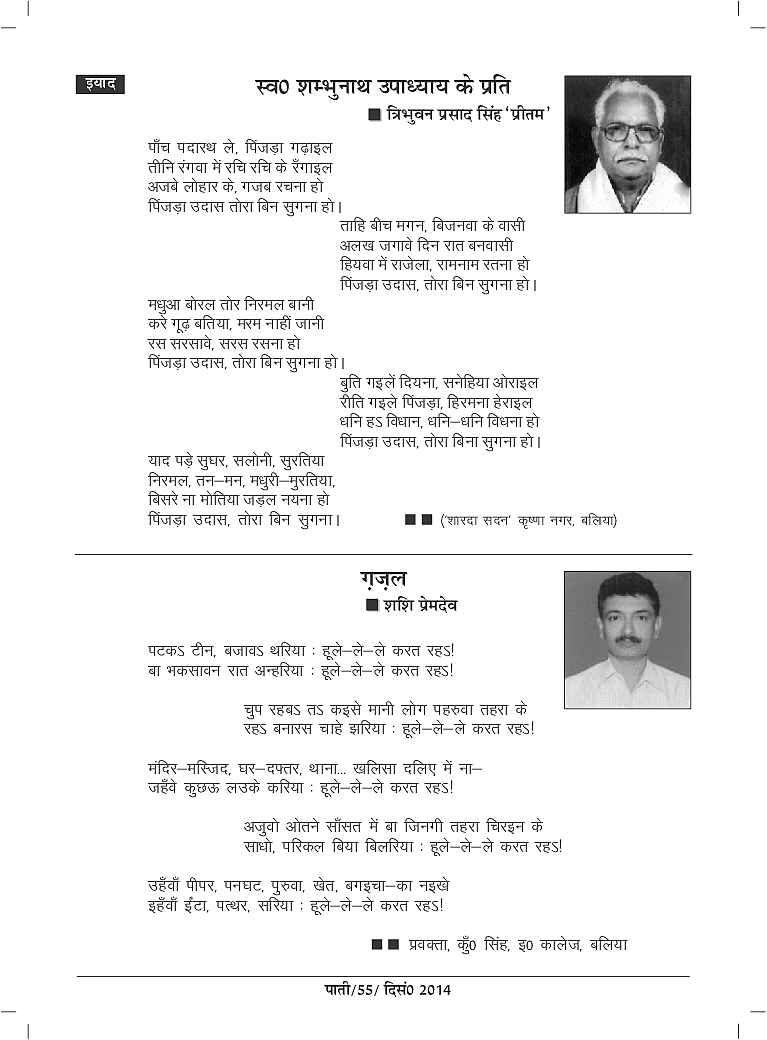 इयाद
स्व0 शम्भुनाथ उपाध्याय के प्रति
■ त्रिभुवन प्रसाद सिंह ‘प्रीतम’
पाँच पदारथ ले, पिंजड़ा गढ़ाइल
तीनि रंगवा में रचि रचि के रँगाइल
अजबे लोहार के, गजब रचना हो
पिंजड़ा उदास तोरा बिन सुगना हो।
ताहि बीच मगन, बिजनवा के वासी
अलख जगावे दिन रात बनवासी
हियवा में राजेला, रामनाम रतना हो
पिंजड़ा उदास, तोरा बिन सुगना हो।
मधुआ बोरल तोर निरमल बानी
करे गूढ़ बतिया, मरम नाहीं जानी
रस सरसावे, सरस रसना हो
पिंजड़ा उदास, तोरा बिन सुगना हो।
बुति गइलें दियना, सनेहिया ओराइल
रीति गइले पिंजड़ा, हिरमना हेराइल
धनि हऽ विधान, धनि–धनि विधना हो
पिंजड़ा उदास, तोरा बिना सुगना हो।
याद पड़े सुघर, सलोनी, सुरतिया
निरमल, तन–मन, मधुरी–मुरतिया,
बिसरे ना मोतिया जड़ल नयना हो
पिंजड़ा उदास, तोरा बिन सुगना।
■ ■ (‘शारदा सदन’ कृष्णा नगर, बलिया)
ग़ज़ल
■ शशि प्रेमदेव
पटकऽ टीन, बजावऽ थरिया : हूले–ले–ले करत रहऽ!
बा भकसावन रात अन्हरिया : हूले–ले–ले करत रहऽ!
चुप रहबऽ तऽ कइसे मानी लोग पहरुवा तहरा के
रहऽ बनारस चाहे झरिया : हूले–ले–ले करत रहऽ!
मंदिर–मस्जिद, घर–दफ्तर, थाना... खलिसा दलिए में ना–
जहँवे कुछऊ लउके करिया : हूले–ले–ले करत रहऽ!
अजुवो ओतने साँसत में बा जिनगी तहरा चिरइन के
साधो, परिकल बिया बिलरिया : हूले–ले–ले करत रहऽ!
उहँवाँ पीपर, पनघट, पुरुवा, खेत, बगइचा–का नइखे
इहँवाँ ईंटा, पत्थर, सरिया : हूले–ले–ले करत रहऽ!
■ ■ प्रवक्ता, कुँ0 सिंह, इ0 कालेज, बलिया
पाती/55/ दिसं0 2014